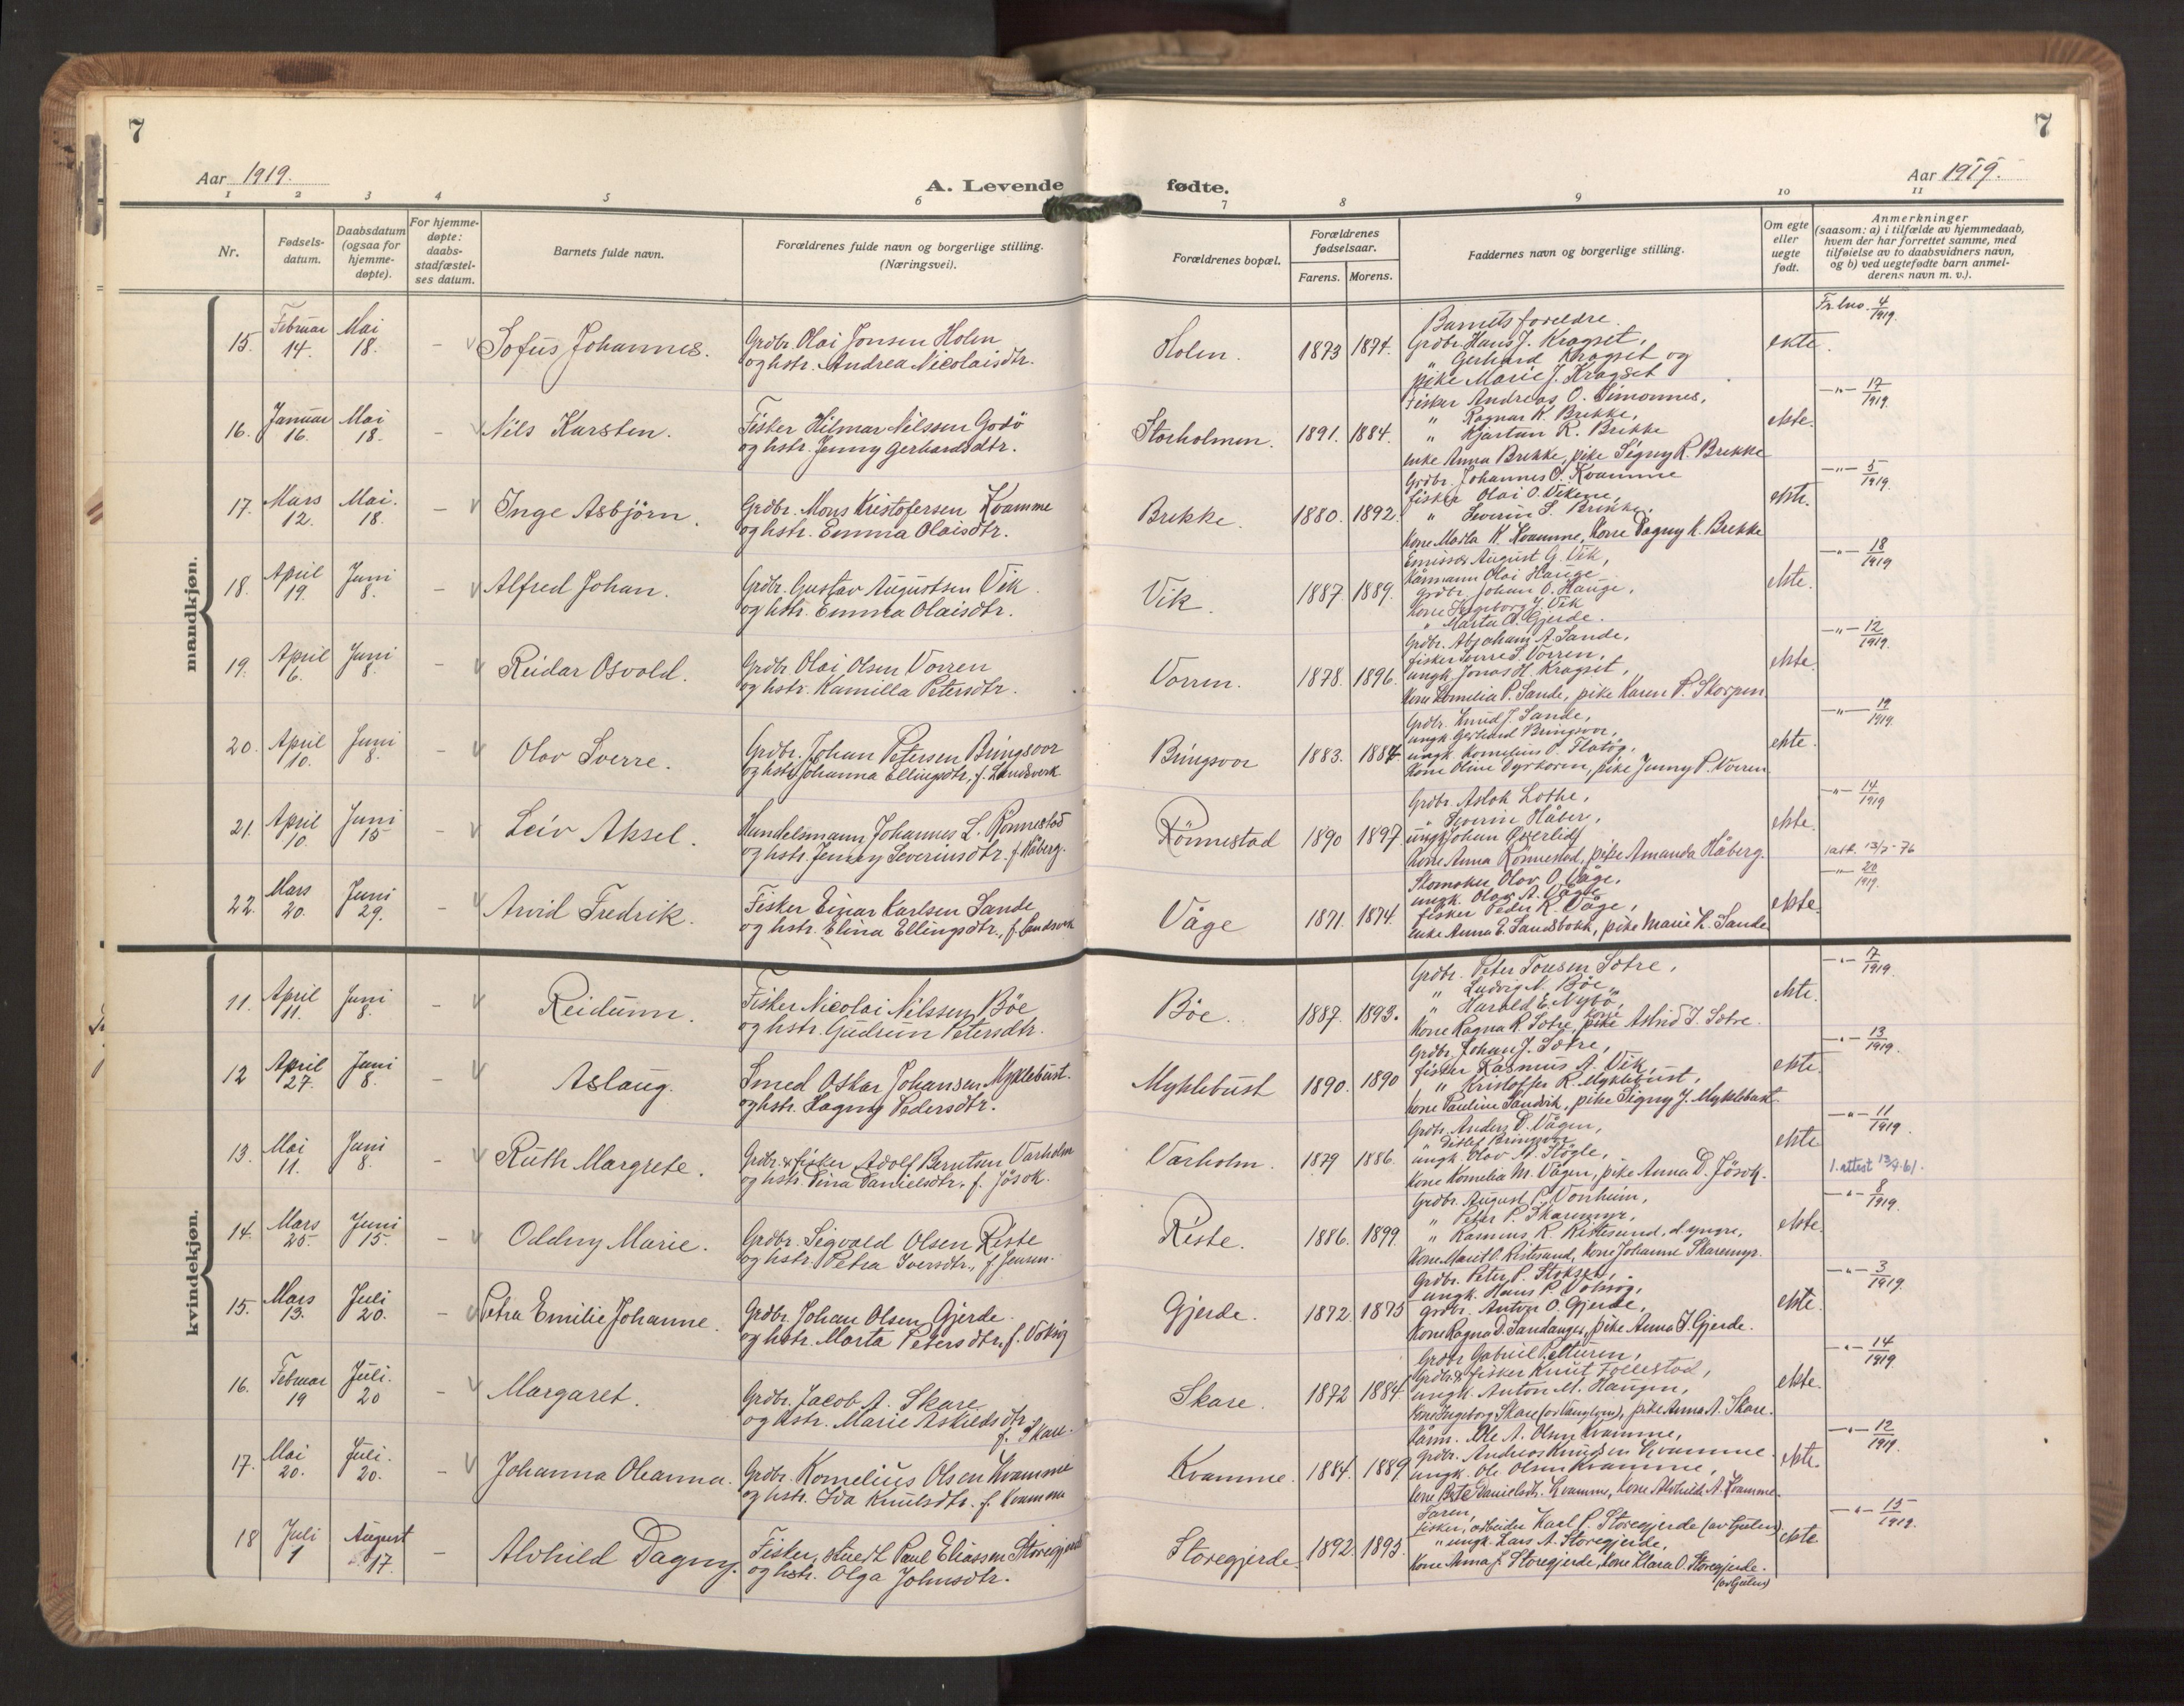 7
7
Aar 1919.
A. Levende
fødte.
Aar 1919.
1 2 3 4 5 6 7 8 9 10 11
Nr.
Fødsels-
datum.
Daabsdatum
(ogsaa for
hjemme-
døpte).
For hjemme-
døpte:
daabs-
stadfæstel-
ses datum.
Barnets fulde navn.
Forældrenes fulde navn og borgerlige stilling.
(Næringsvei).
Forældrenes bopæl.
Forældrenes
fødselsaar.
Farens. Morens.
Faddernes navn og borgerlige stilling.
Om egte
eller
uegte
født.
Anmerkninger
(saasom: a) i tilfælde av hjemmedaab,
hvem der har forrettet samme, med
tilføielse av to daabsvidners navn,
og b) ved uegtefødte barn anmel-
derens navn m. v.).
mandkjøn.
15. Februar 14. Mai 18. - Sofus Johannes. Grdbr. Olai Jonsen Holen
og hstr. Andrea Nicolaisdtr. Holen. 1873 1874. Barnets foreldre
Grdbr. Hans J. Kragset,
" Gerhard Kragset og
pike Marie J. Kragset
ekte. 4/1919.
16. Januar 16. Mai 18. - Nils Karsten. Fisker Hilmar Nilssen Godö
og hstr. Jenny Gerhardsdtr. Storholmen. 1891. 1884. Fisker Andreas O. Simonnes,
" Ragnar K. Brekke,
" Kjartan R. Brekke
enke Anna Brekke, pike Signy R. Brekke
ekte. -"- 17/1919.
17. Mars 12. Mai. 18. - Inge Asbjörn. Grdbr. Mons Kristofersen Kvamme
og hstr. Emma Olaisdtr. Brekke. 1880. 1892. Grdbr. Johannes O. Kvamme
fisker Olai O. Vikene,
" Severin S. Brekke,
kone Marta K. Kvamme, kone Dagny K. Brekke
ekte. -"- 5/1919.
18. April 19. Juni 8. - Alfred Johan. Grdbr. Gustav Augustsen Vik
og hstr. Emma Olaisdtr. Vik. 1887. 1889. Emissær August G. Vik,
kårmann Olai Hauge
grdbr. Johan O. Hauge,
kone Ingeborg J. Vik
" Marta A. Gjerde.
ekte. -"- 18/1919
19. April 6. Juni 8. - Reidar Osvald. Grdbr. Olai Olsen Vorren
og hstr. Kamilla Petersdtr. Vorren. 1878. 1896. Grdbr. Abraham A. Sande,
fisker Sverre S. Vorren,
ungk. Jonas H. Kragset,
kone Kornelia P. Sande, pike Karen P. Skorpen
ekte. -"- 12/1919.
20. April 10. Juni 8. - Olav Sverre. Grdbr. Johan Petersen Bringsvor
og hstr. Johanna Ellingsdtr., f. Landsverk Bringsvor 1883. 1884. Grdbr. Knud J. Sande,
ungk. Gerhard Bringsvor,
ungk. Kornelius P. Flatög,
kone Oline Dyrkorn, pike Jenny P. Vorren
ekte. -"- 19/1919.
21. April 10. Juni 15 - Leiv Aksel. Handelsmann Johannes L. Rönnestad
og hstr. Jenny Severinsdtr. f. Håberg. Rönnestad 1890 1897. Grdbr. Aslak Lothe,
" Severin Håber,
ungk. Johan Överlid
kone Anna Rönnestad, pike Amanda Håberg.
ekte. -"- 14/1919
1 att. 13/5-76
22. Mars 20. Juni 29. - Arvid Fredrik. Fisker Einar Karlsen Sande
og hstr. Elina Ellingsdtr., f. Landsverk Våge 1871. 1874. Skomaker Olav O. Våge,
ungk. Olav A. Våge
fisker Peder K. Våge,
enke Anna E. Sandsbakk, pike Marie K. Sande
ekte. -"- 20/1919.
kvindekjøn.
11. April 11. Juni 8. - Reidunn. Fisker Nicolai Nilssen Böe
og hstr. Gudrun Petersdtr. Böe. 1887. 1893. Grdbr. Peter Tonesen Sætre,
" Ludvig N. Böe,
" Harald E. Nybö,
kone Ragna R. Sætre, kone Astrid J. Sætre.
ekte. -"- 7/1919.
12 April 27. Juni 8. - Aslaug. Smed Oskar Johansen Myklebust.
og hstr. Dagny Pedersdtr. Myklebust 1890. 1890 Grdbr. Johan J. Sætre,
fisker Rasmus A. Vik,
" Kristoffer R. Myklebust,
kone Pauline Sandvik, pike Signy J. Myklebust.
ekte. -"- 13/1919.
13. Mai 11. Juni 8. - Ruth Margrete. Grdbr. & fisker Adolf Berntsen Varholm
og hstr. Lina Danielsdtr. f. Jösok. Varholm. 1879 1886. Grdbr. Anders D. Vågen,
" Ditlef Bringsvor
ungk. Olav A. Stögle,
kone Kornelia M. Vågen, pike Anna D. Jösok.
ekte. -"- 11/1919.
1. attest 13/4-61.
14. Mars 25. Juni 15. - Oddny Marie. Grdbr. Sigvald Olsen Riste
og hstr. Petra Iversdtr., f. Jensen. Riste. 1886. 1899. Grdbr. August P. Vonheim,
" Peter P. Skaremyr,
" Rasmus R. Ristesund, d. yngre,
kone Marit O. Ristesund, kone Johanne Skaremyr.
ekte. -"- 8/1919.
15. Mars 13. Juli 20. - Petra Emilie Johanne. Grdbr. Johan Olsen Gjerde
og hstr. Marta Petersdtr., f. Voksig Gjerde. 1872. 1875 Grdbr. Peter P. Stokset,
ungk. Hans P.
grdbr. Anton O. Gjerde,
kone Ragna D. Sandanger, pike Anna J. Gjerde.
ekte. -"- 3/1919.
16. Februar 19 Juli. 20 - Margaret. Grdbr. Jacob A. Skare
og hstr. Marie Askildsdtr.
f. Skare. Skare. 1872 1884 Grdbr. Gabriel
Grdbr. & fisker Knut Follestad,
ungk. Anton M. Haugen,
kone Ingeborg Skare, pike Anna A. Skare.
ekte. -"- 14/1919.
17. Mai 20. Juli. 20. - Johanna Oleanna. Grdbr. Kornelius Olsen Kvamme
og hstr. Ida Knutsdtr. f. Kvamme Kvamme. 1884. 1889 Kårm. Ole A. Olsen Kvamme,
Grdbr. Andreas Knudsen Kvamme
ungk. Ole Olsen Kvamme,
kone Berte Danielsdtr. Kvamme, kone Alvhilde A. Kvamme
ekte. -"- 12/1919.
18 Juli 1 August 17. - Alvhild Dagny. Fisker, Paul Eliassen Storegjerde
og hstr. Olga Johnsdtr. Storegjerde. 1892. 1893. Faren,
fisker, arbeider Karl P. Storegjerde
" ungk. Lars A. Storegjerde,
kone Anna J. Storegjerde, kone Klara O. Storegjerde.
ekte -"- 15/1919.